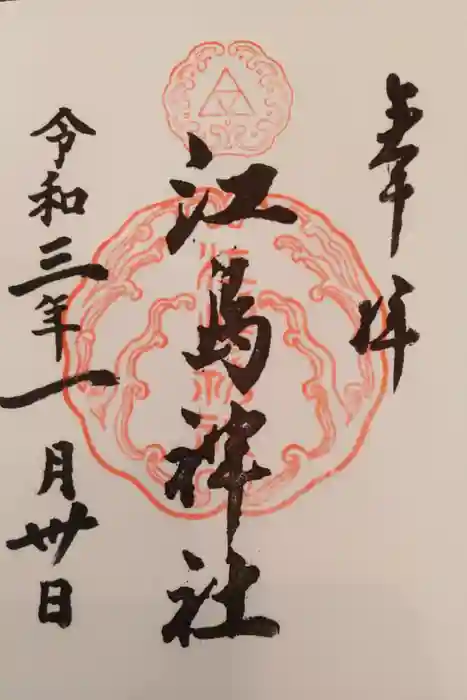 奉拝
江島神社
令和三年一月卅日